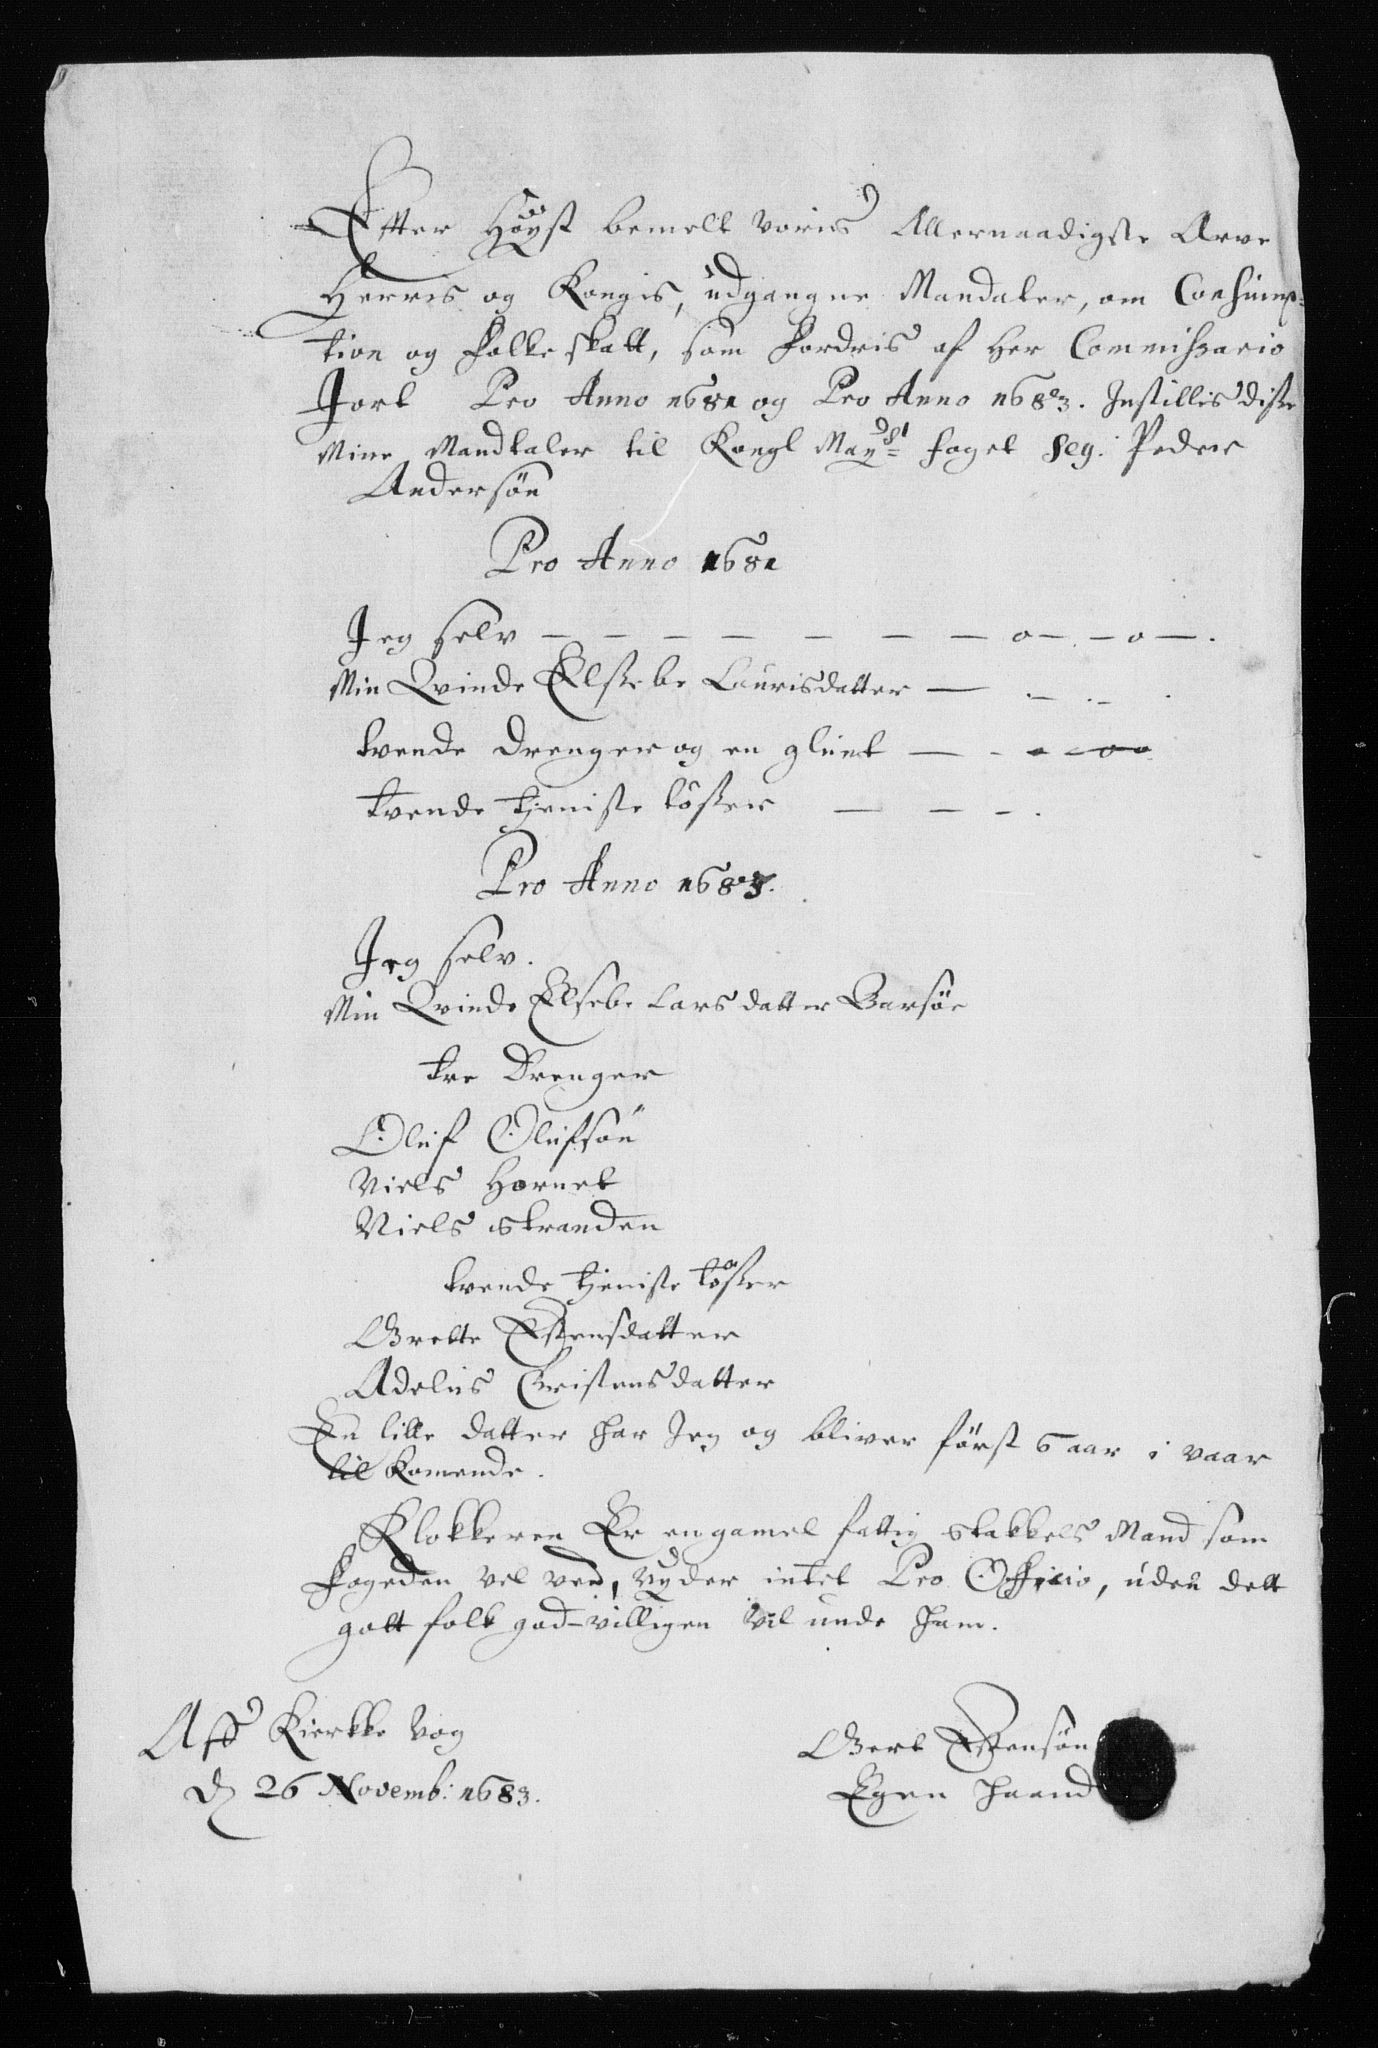 Effter Høyst bemelt voris Allernaadigste Arve
Herris og Kongis, udgangne Mandater, om Consump-
tion og folke skatt, som fordris af Her Commissario
Jort Pro Anno 1681 og Pro Anno 1683. Instillis disse
Mine Mandtaler til Kongl May: foget Seg: Peder
Andersøn
Pro Anno 1681
Jeg selv — — — — — — — o — . — o — .
Min Qvinde Elssebe Laurisdatter — . — . . — .
tvende drenger og en glunt — - - - oo
tvende tjeniste tøsser — — - .
Pro Anno 1683.
Jeg selv.
Min Qvinde Elsebe Larsdatter Barsøe
tre Drenger
Oluf Olufsøn
Niels Hornet
Niels stranden
tvende tjeniste tøsser
Grette Estensdatter
Adelus Cristensdatter
En lille datter har Jeg og bliver først 6 aar i vaar
til komende.
Klokkeren Er en gamel fattig stakkels Mand som
fogeden vel ved, nyder intet Pro Officio, uden dett
gott folk god-villigen vil unde ham.
Aff Kierkke Vog
d 26 Novemb: 1683.
Gert Estensøn
Egen haand